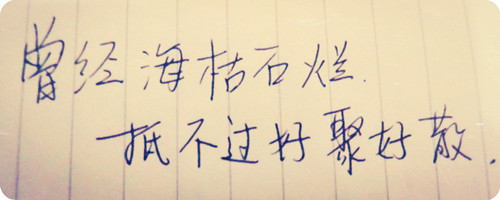 曾经海枯石烂.
抵不过好聚好散.